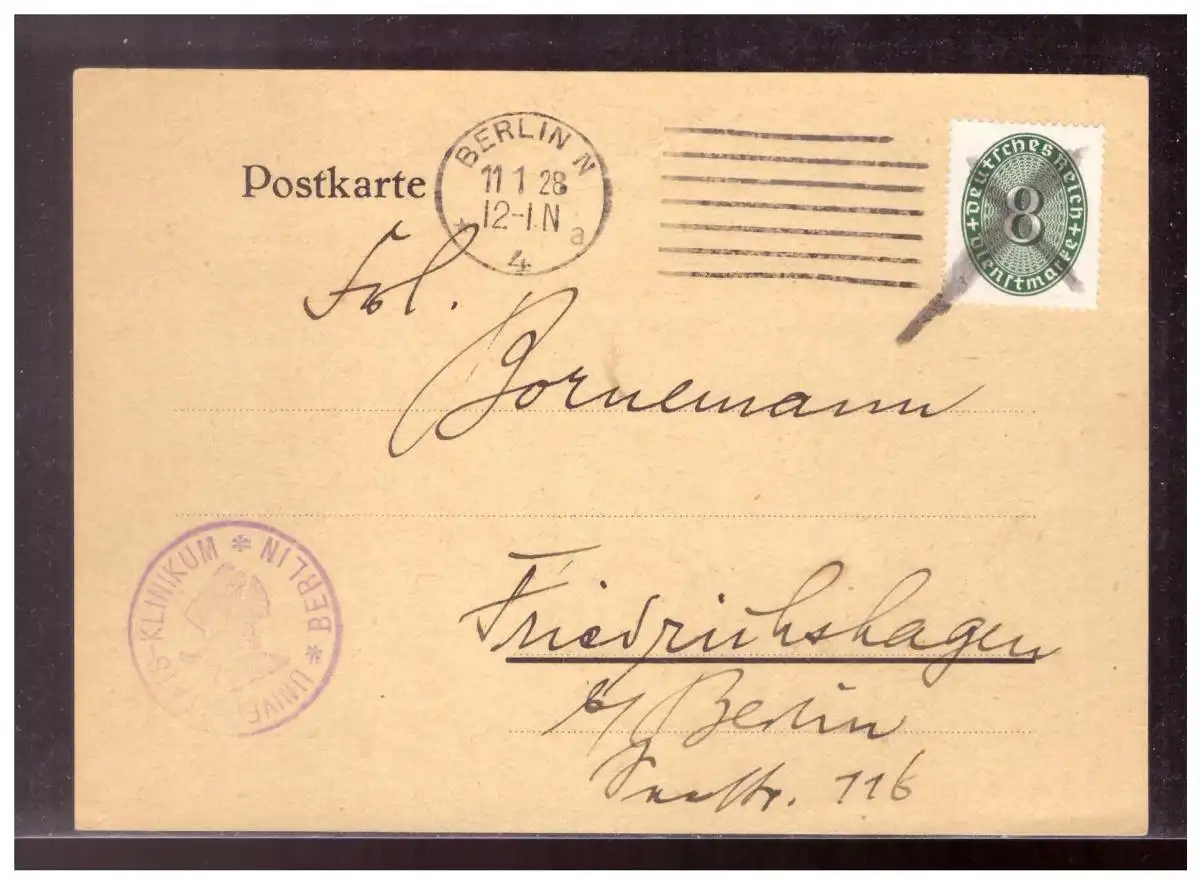 Postkarte
BERLIN N
11 1 28
12-1.N
* a
4
Deutsches Reich
8
+ Dienstmarke +
Frl.
Bornemann
Friedrichshagen
b/Berlin
Seestr. 116
* BERLIN *
-KLINIKUM